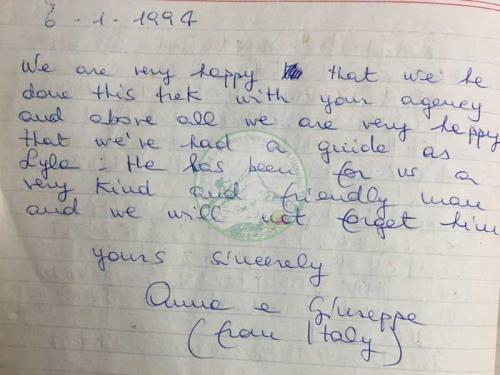 6 - 1 - 1994
We are very happy that we he
done this trek with your agency
and above all we are very happy
that we're had a guide as
Lyla : He has been for us a
very kind and friendly man
and we will not forget him
yours sincerely
Anna e Giuseppe
(from Italy)